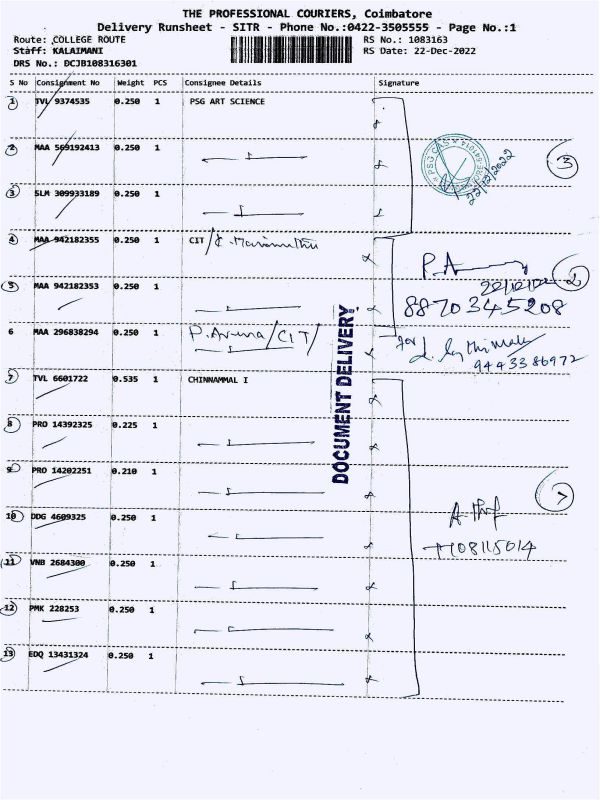 THE PROFESSIONAL COURIERS, Coimbatore
Delivery Runsheet - SITR - Phone No.:0422-3505555 - Page No.:1
Route: COLLEGE ROUTE RS No.: 1083163
Staff: KALAIMANI RS Date: 22-Dec-2022
DRS No.: DCJB108316301
S No Consignment No Weight PCS Consignee Details Signature
1 TVL 9374535 0.250 1 PSG ART SCIENCE
2 MAA 569192413 0.250 1
PSG CAS
22/12/2022
3
3 SLM 309933189 0.250 1
4 MAA 942182355 0.250 1 CIT/
2
5 MAA 942182353 0.250 1
8870345208
6 MAA 296838294 0.250 1 P.Aruna/CIT/
for
9443386972
DOCUMENT DELIVERY
7 TVL 6601722 0.535 1 CHINNAMMAL I
8 PRO 14392325 0.225 1
9 PRO 14202251 0.210 1
7
10 DDG 4609325 0.250 1
11 VNB 2684300 0.250 1
12 PMK 228253 0.250 1
13 EDQ 13431324 0.250 1